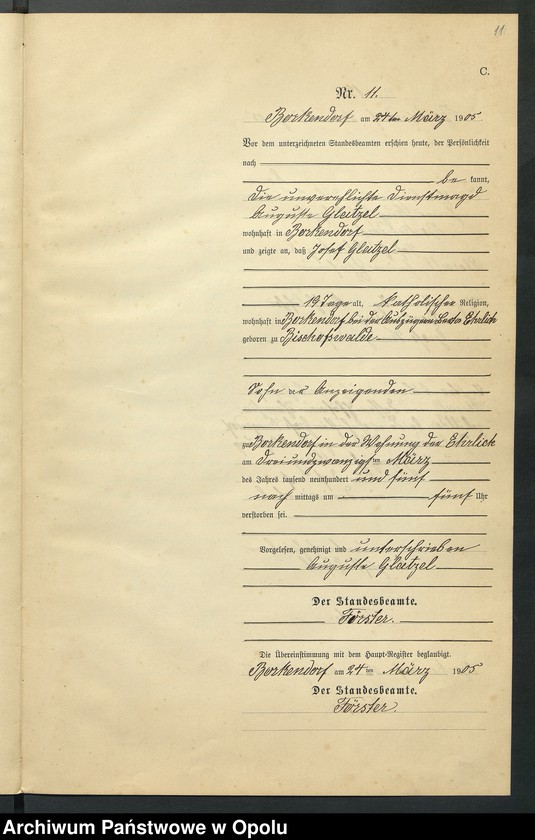 11
C.
Nr. 11.
Borkendorf am 24ten März 1905
Vor dem unterzeichneten Standesbeamten erschien heute, der Persönlichkeit
nach
be kannt,
die unverehlichte Dienstmagd
Auguste Gleitzel
wohnhaft in Borkendorf
und zeigte an, daß Josef Gleitzel
19 Tage alt, katholischer Religion,
wohnhaft in Borkendorf bei der Auszügerin Ehrlich
geboren zu Bischofswalde
Sohn der Anzeigenden
zu Borkendorf in der Wohnung der Ehrlich
am dreiundzwanzigsten März
des Jahres tausend neunhundert und fünf
nach mittags um fünf Uhr
verstorben sei.
Vorgelesen, genehmigt und unterschrieben
Auguste Gleitzel
Der Standesbeamte.
Förster.
Die Übereinstimmung mit dem Haupt-Register beglaubigt.
Borkendorf am 24ten März 1905
Der Standesbeamte.
Förster.
Archiwum Państwowe w Opolu